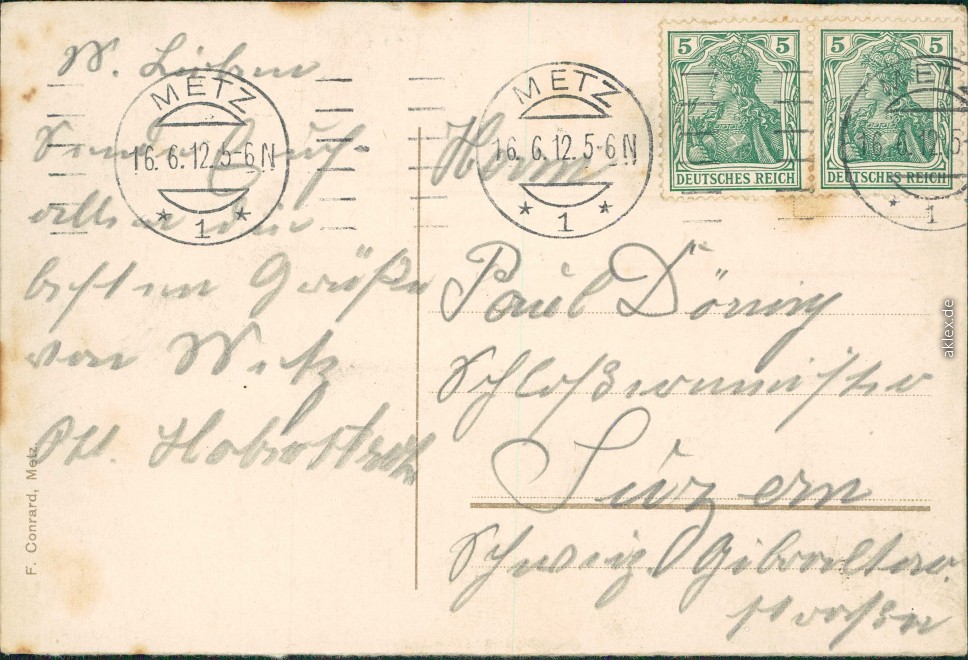 W. Lieben
Sende Euch
allen die
besten Grüße
von Metz
F. Conrard, Metz.
METZ
16.6.12.5-6N
* 1 *
METZ
16.6.12.5-6N
* 1 *
5 5
DEUTSCHES REICH
5 5
DEUTSCHES REICH
METZ
16.6.12.5-
* 1
Herrn
Paul Döring
Schlossermeister
Luzern
Schweiz Gibraltar
straße
aklex.de